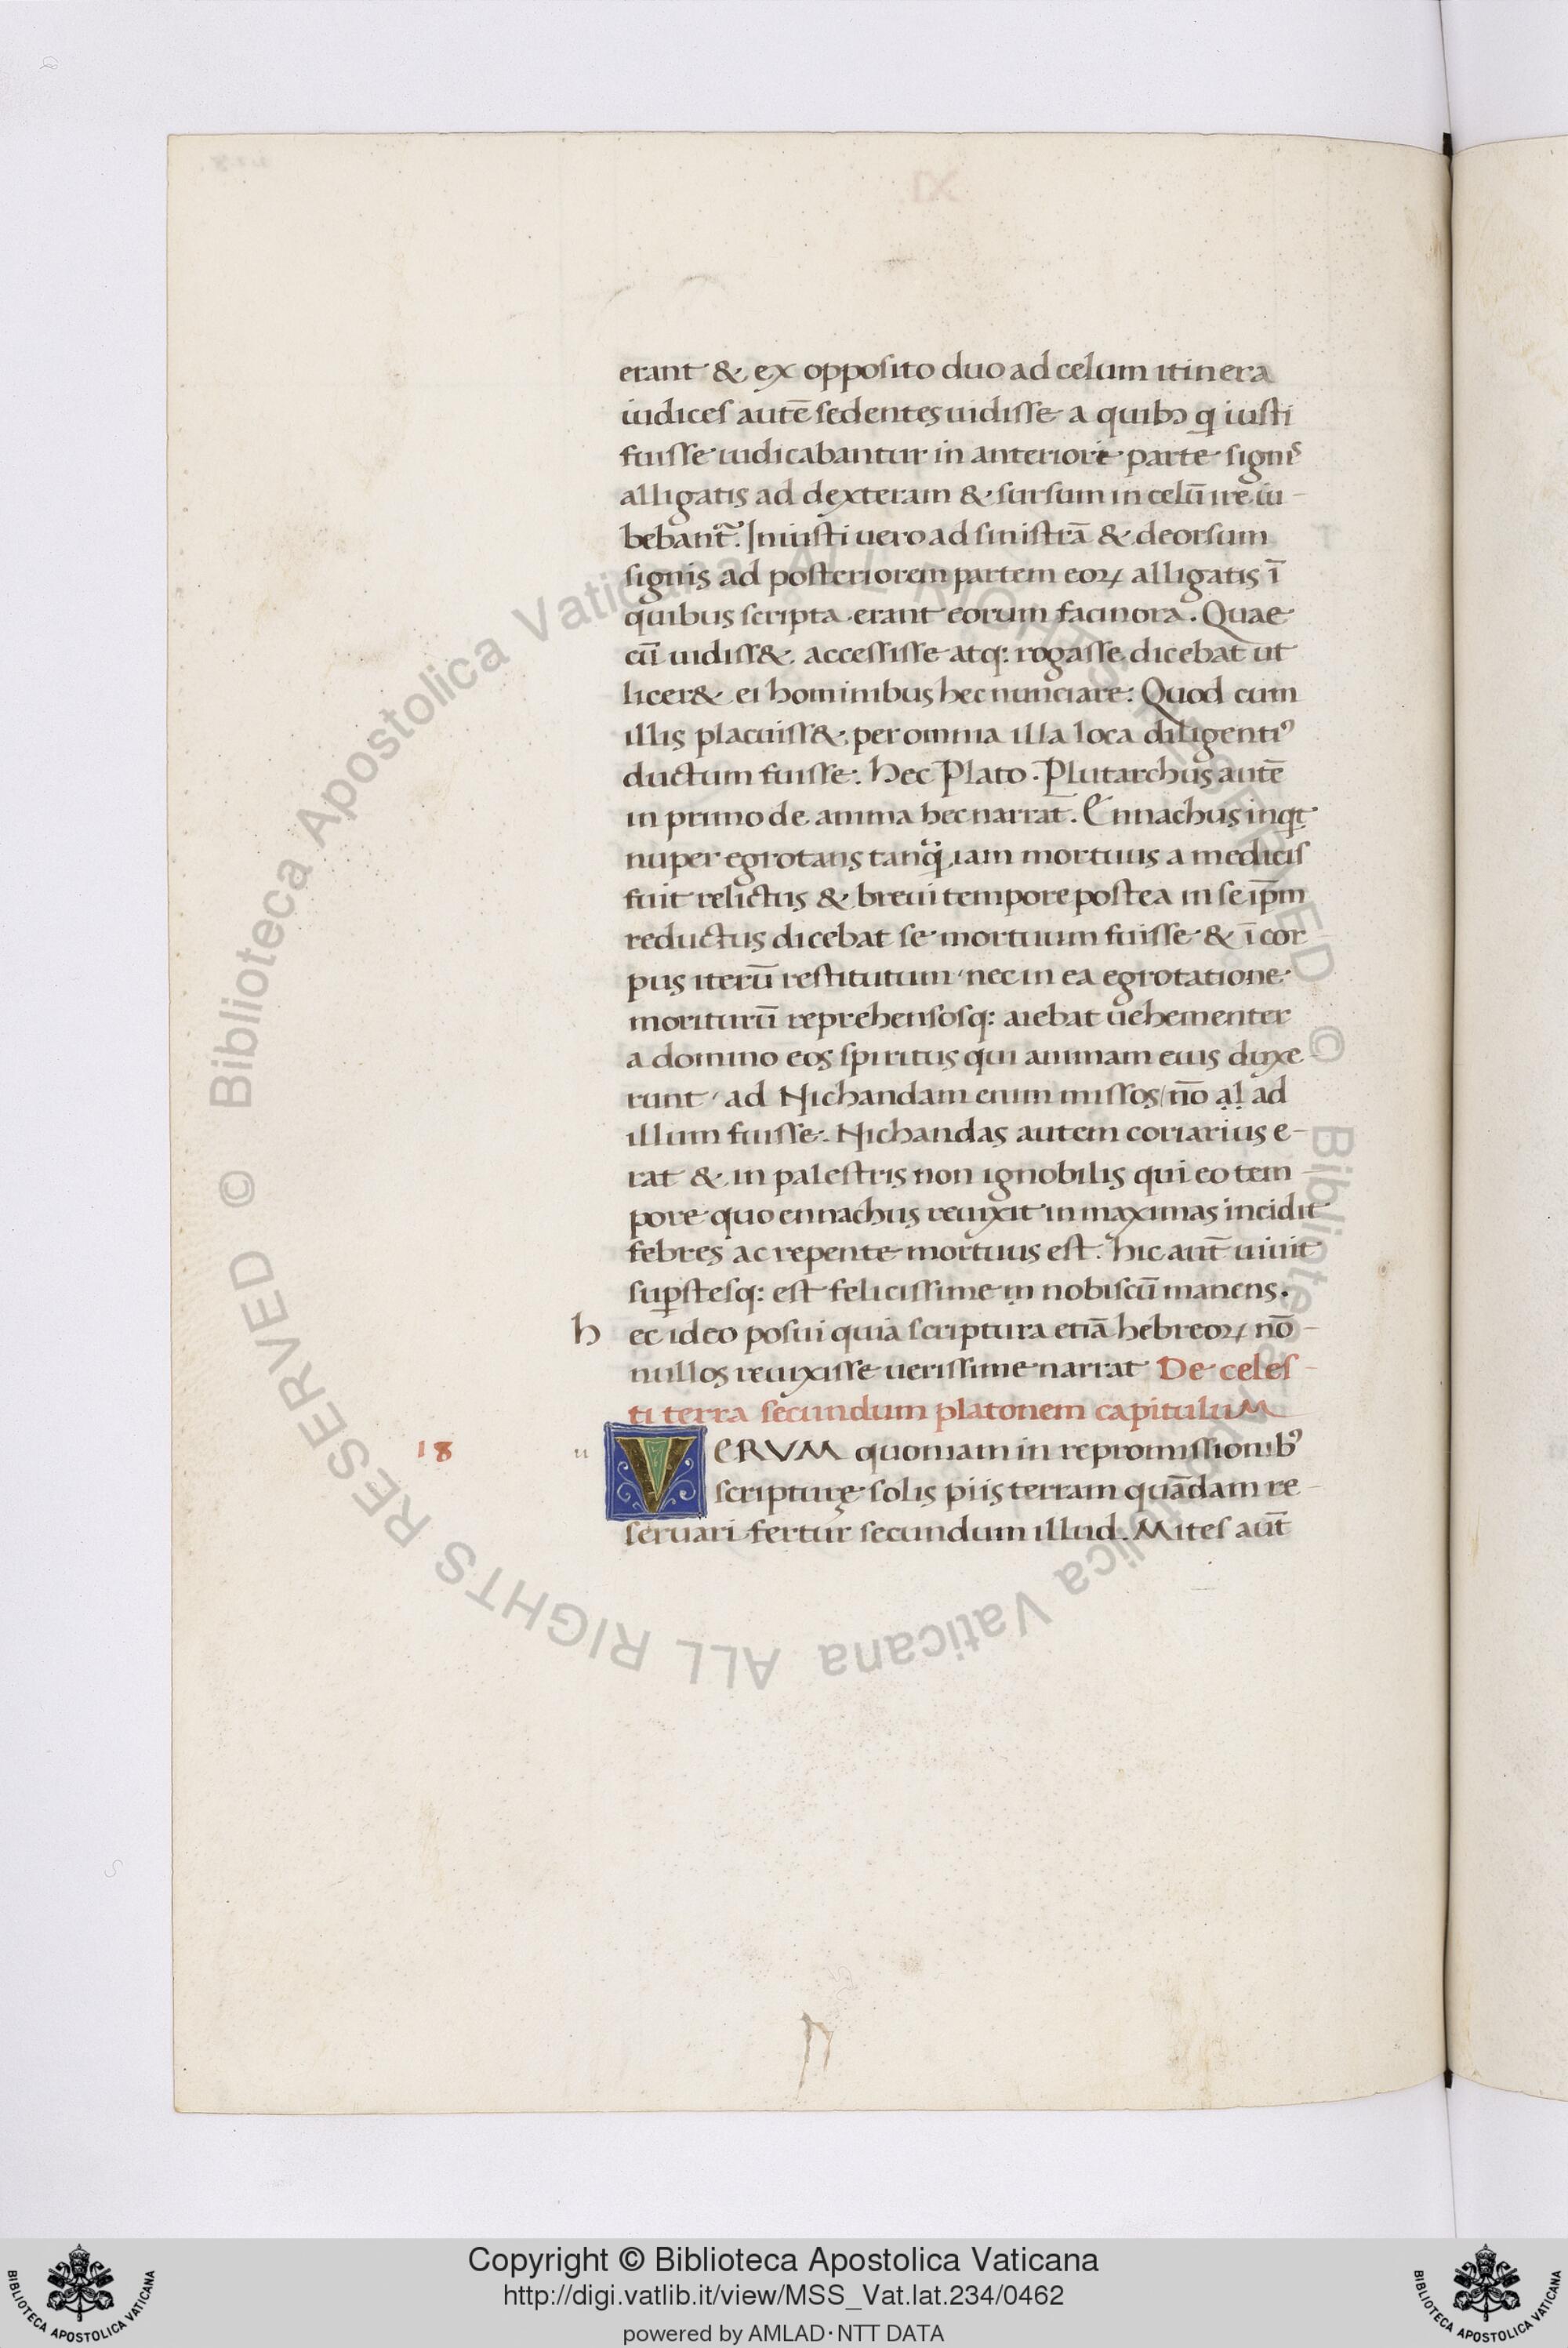 erant & ex opposito duo ad celum itinera
iudices autē sedentes uidisse a quibꝫ q iusti
fuisse iudicabantur in anteriore parte signis
alligatis ad dexteram & sursum in celū ire iu-
bebant᷑. Iniusti uero ad sinistrā & deorsum
signis ad posteriorem partem eoꝝ alligatis ī
quibus scripta erant eorum facinora. Quae
cū uidiss&. accessisse atq: rogasse dicebat ut
licer& ei hominibus hec nunciare: Quod cum
illis placuiss&, per omnia illa loca diligentiꝰ
ductum fuisse. Hec Plato. Plutarchus autē
in primo de anima hec narrat. Ennachus inqt
nuper egrotans tanq̄ iam mortuus a medicis
fuit relictus & breui tempore postea in se ip̄m
reductus dicebat se mortuum fuisse & ī cor
pus iterū restitutum nec in ea egrotatione
moriturū reprehensosq: aiebat uehementer
a domino eos spiritus qui animam eius duxe
runt ad Nichandam enim missos/ nō al ad
illum fuisse. Nichandas autem coriarius e-
rat & in palestris non ignobilis qui eo tem
pore quo ennachus reuixit in maximas incidit
febres ac repente mortuus est. hic aut̄ uiuit
suꝑstesq: est felicissime in nobiscū manens.
h ec ideo posui quia scriptura etiā hebreoꝝ nō-
nullos reuixisse uerissime narrat De celes-
ti terra secundum platonem capituluM
18 u VERVM quoniam in repromissionibꝰ
scripturę solis piis terram quādam re-
seruari fertur secundum illud. Mites aut̄
Copyright © Biblioteca Apostolica Vaticana
http://digi.vatlib.it/view/MSS_Vat.lat.234/0462
powered by AMLAD·NTT DATA
BIBLIOTECA APOSTOLICA VATICANA
BIBLIOTECA APOSTOLICA VATICANA
© Biblioteca Apostolica Vaticana ALL RIGHTS RESERVED © Biblioteca Apostolica Vaticana ALL RIGHTS RESERVED